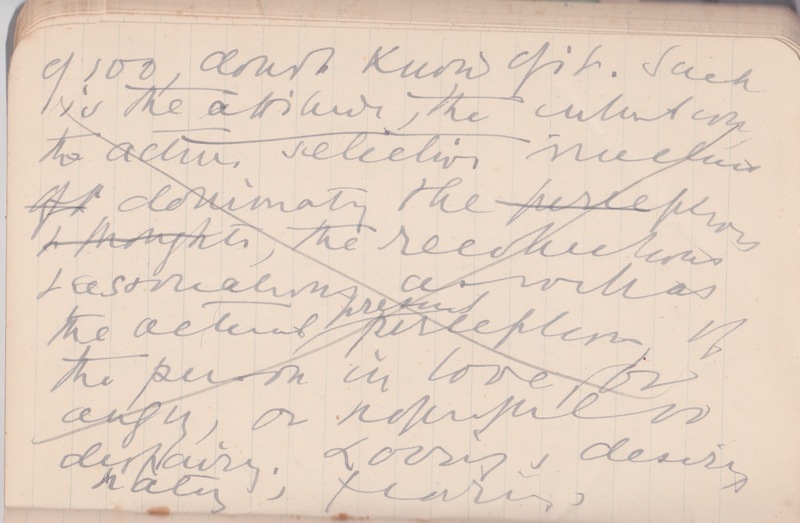 of 100, don't know of it. Such
is the attitude, the intention,
the active selective
dominating the perceptions
& thoughts, the recollections
& associations as well as
the actual present perceptions, of
the person in love, or
angry, or hopeful or
despairing. Loving, desiring
hating, fearing